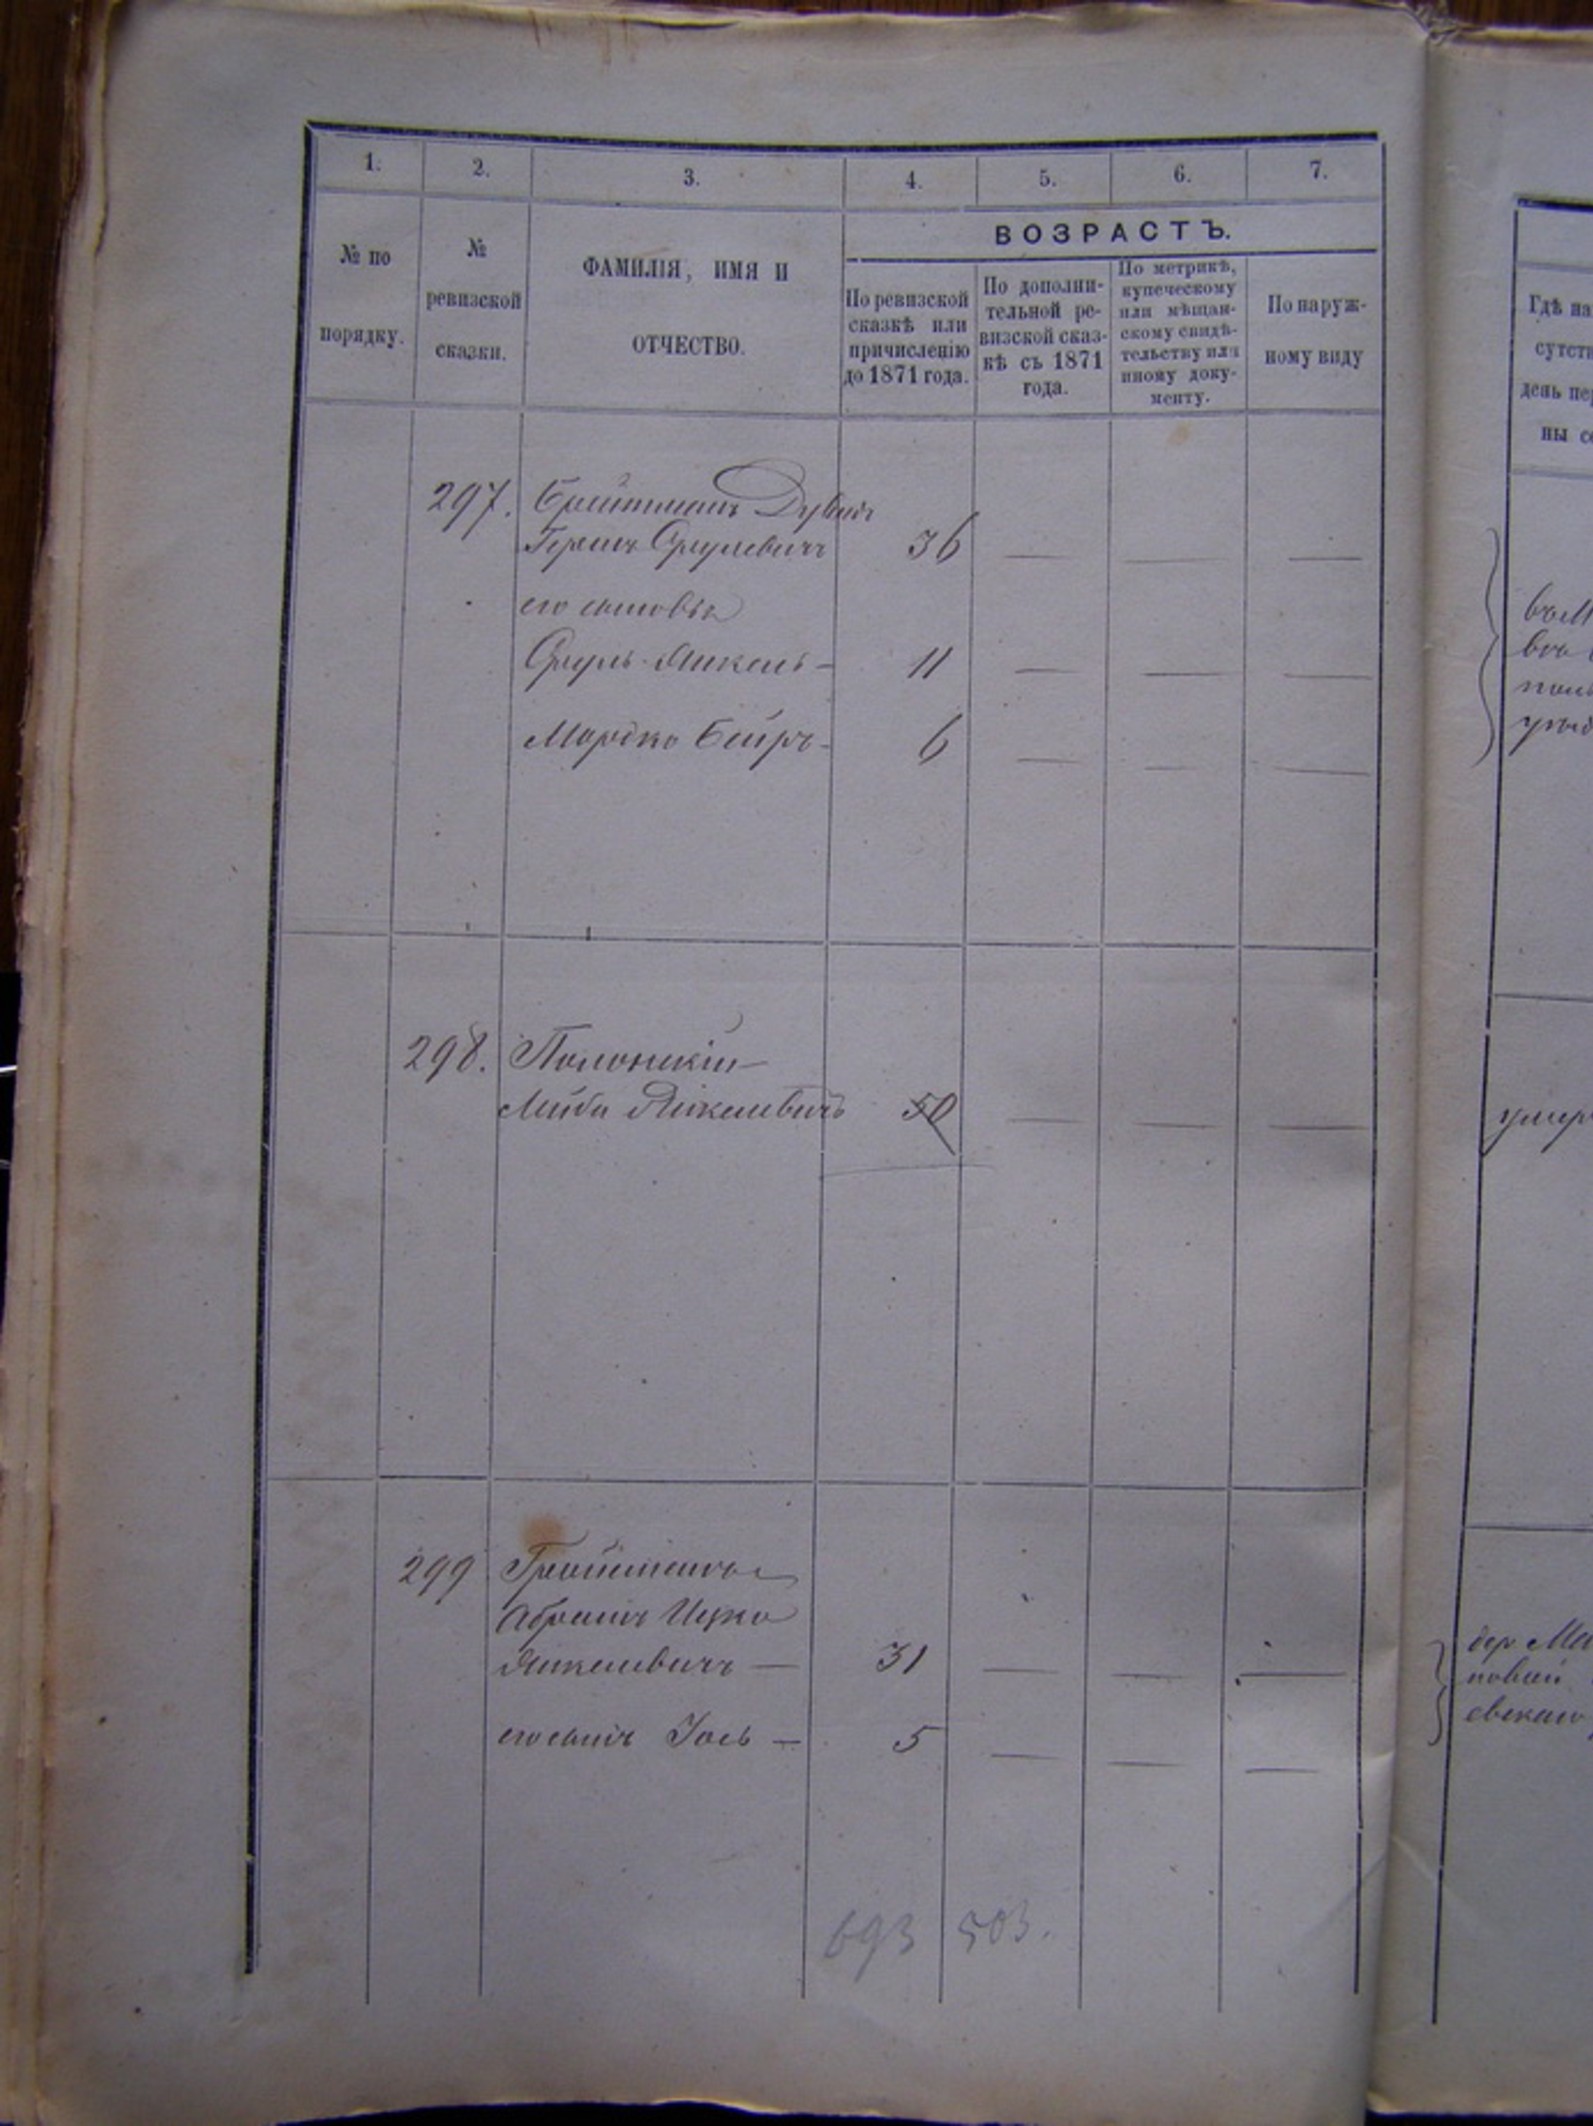 1. 2. 3. 4. 5. 6. 7.
№ по порядку.
№ ревизской сказки.
ФАМИЛІЯ, ИМЯ И ОТЧЕСТВО.
ВОЗРАСТЪ.
По ревизской
сказкѣ или
причисленію
до 1871 года.
По дополни-
тельной ре-
визской сказ-
кѣ съ 1871
года.
По метрикѣ,
купеческому
или мѣщан-
скому свидѣ-
тельству или
иному доку-
менту.
По наруж-
ному виду
297. Бройтманъ Дувидъ
Гершъ Срулевичъ 36 — — —
его сыновья
Сруль-Янкель — 11 — — —
Мордко Бейръ — 6 — — —
298. Полонскій —
Лейба Янкелевичъ 50 — — —
299 Гройсманъ
Абрамъ Ицко
Янкелевичъ — 31 — — —
его сынъ Іось — 5 — — —
693 503.
Гдѣ на
сутст
день пе
ны с
въ М
умер
дер. Ма
новой